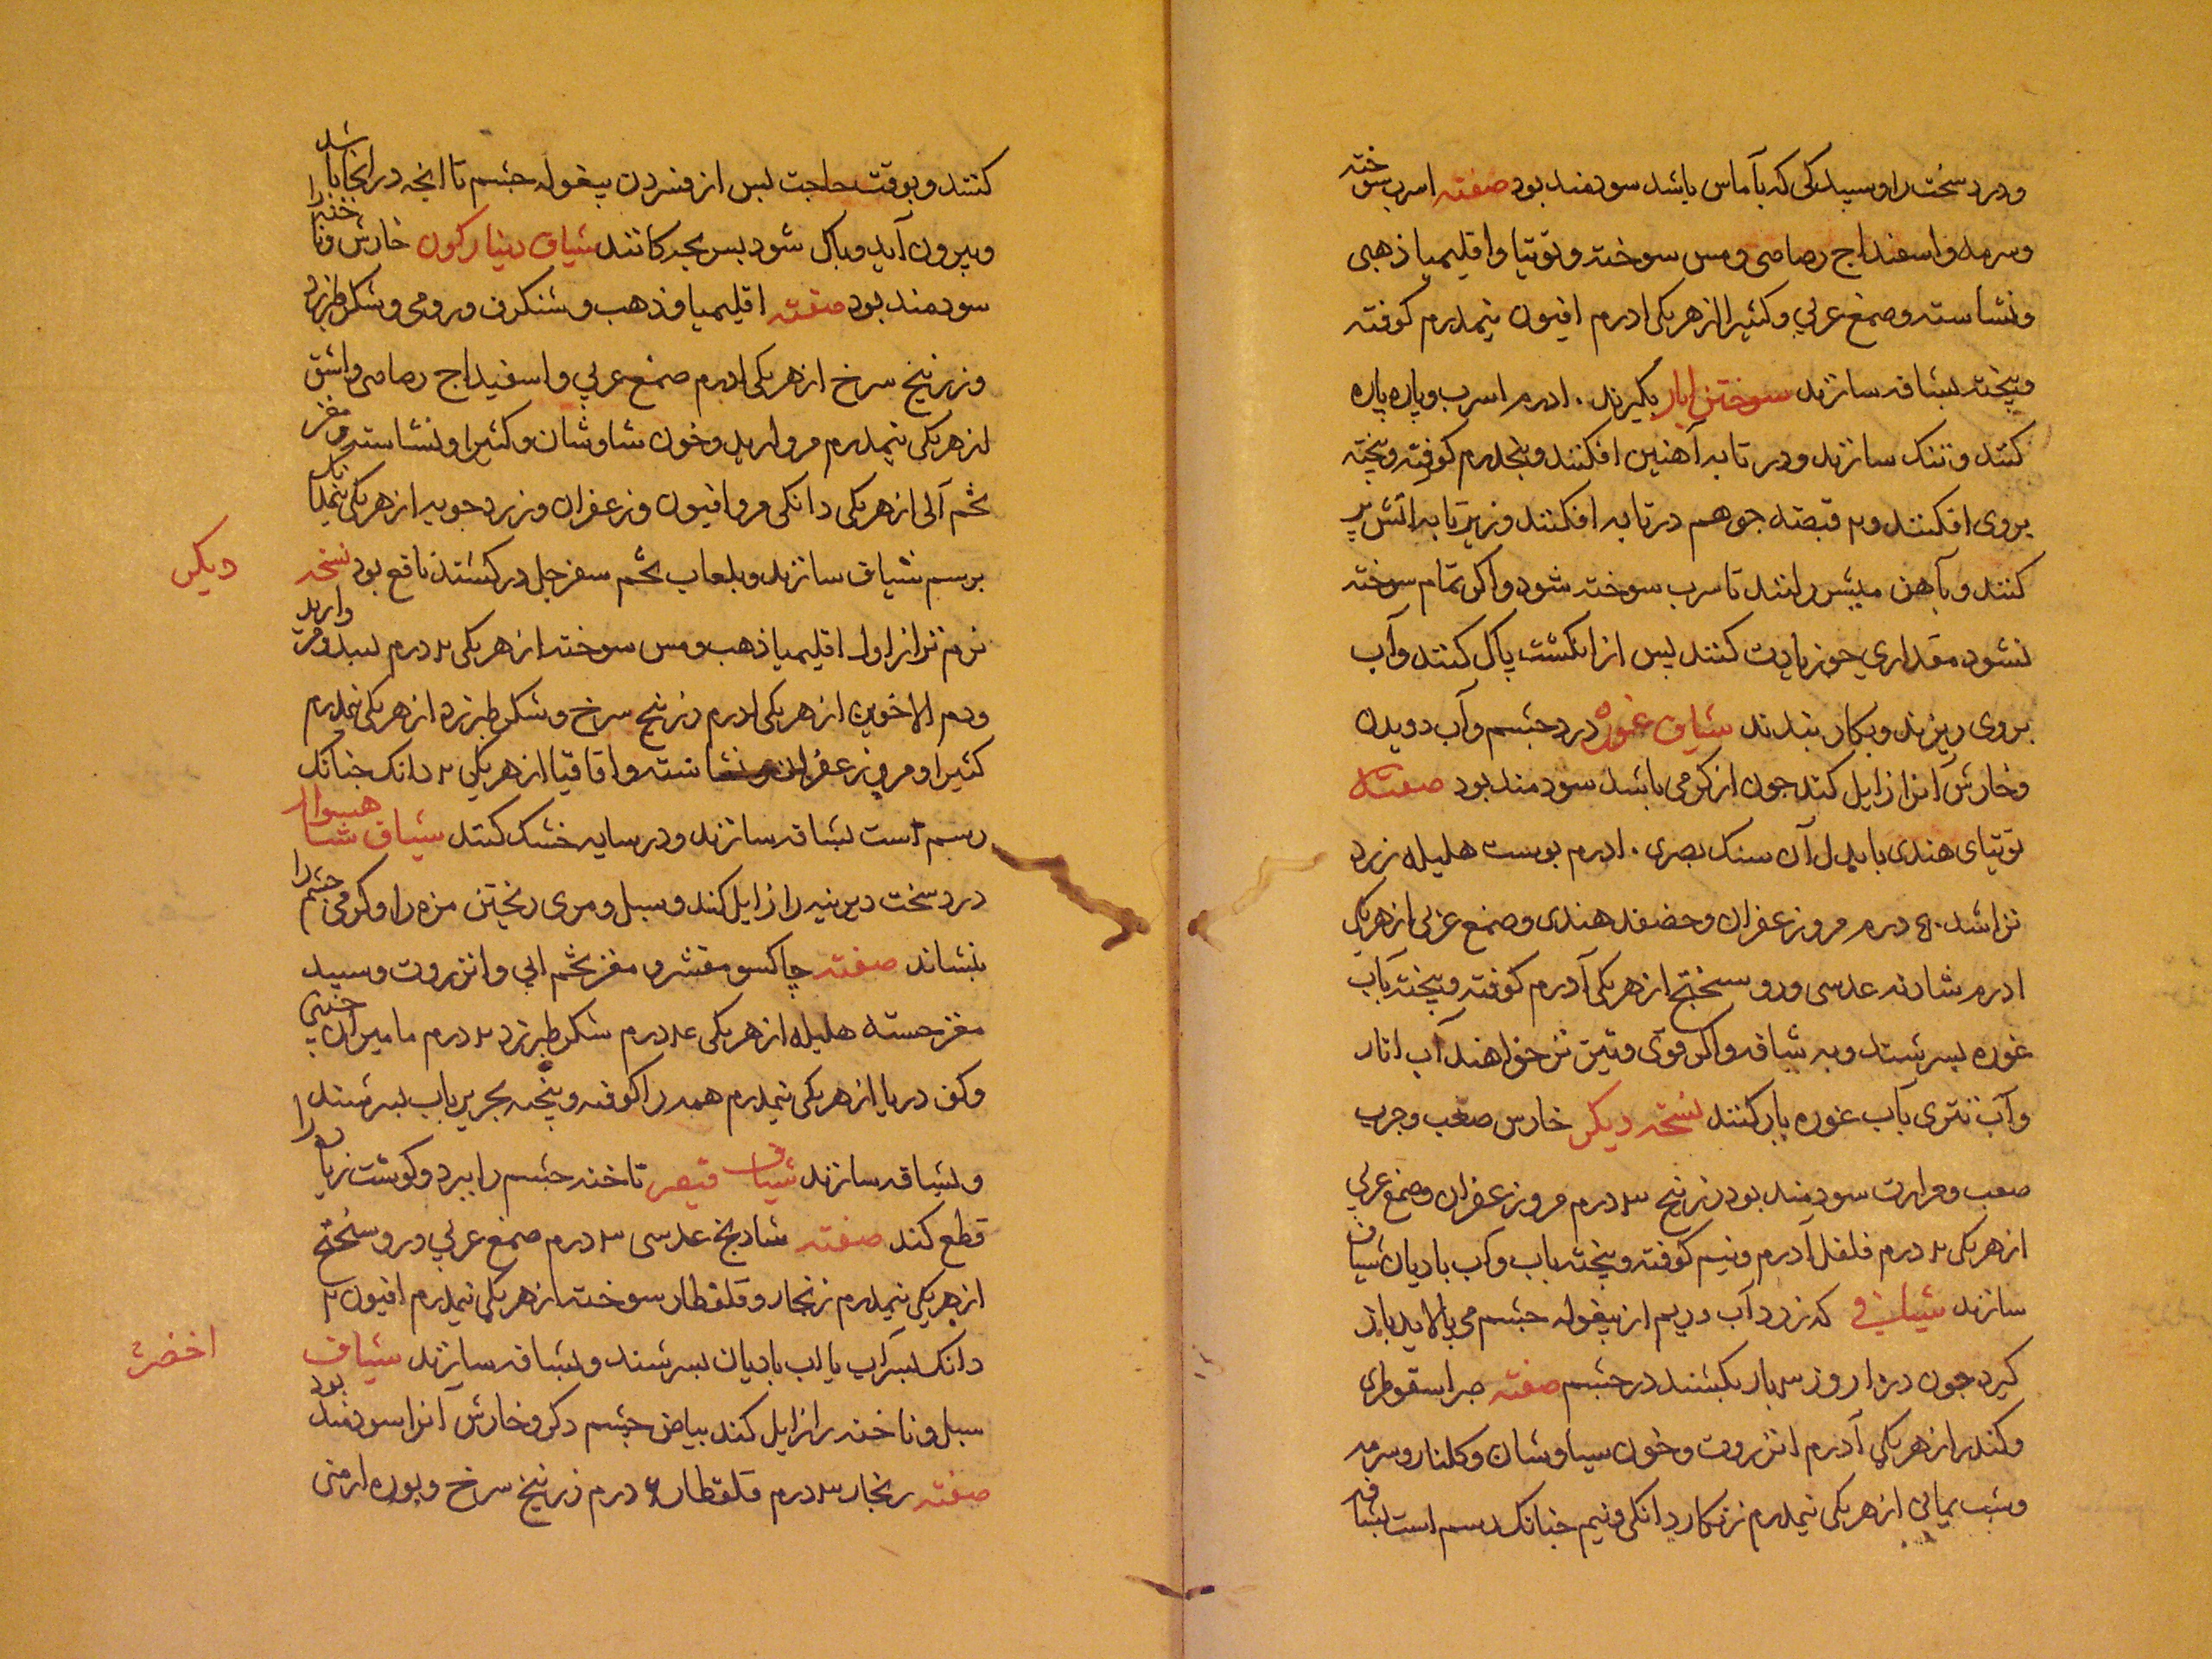 ودرد سخت را وسپیدکی که بآماس باشد سودمند بود صفته اسرب سوخته
وسرمه واسفنداج رصاصی ومس سوخته وتوتیا واقلیمیا ذهبی
ونشاسته وصمغ عربی وکثیرا ازهریکی ادرم افیون نیمدرم کوفته
وبیخته بشافه سازند سوختن ابار بکیرند ۱۰درم اسرب وپاره پاره
کنند وتنک سازند ودر تابه آهنین افکنند وپنجدرم کوفته وبیخته
بروی افکنند و۲ قبضه جو هم درتابه افکنند وزیر تابه اتش بر
کنند وبآهن میشورانند تا سرب سوخته شود واکر تمام سوخته
نشود مقداری جو زیادت کنند پس از انکشت پاک کنند وآب
بروی ریزند وبکار بندند شیاف غوره درد چشم وآب دویدن
وخارش آنرا زایل کند چون از کرمی باشد سودمند بود صفته
توتیای هندی یا بدل آن سنک بصری ۱۰درم پوست هلیله زرد
درم مر وزعفران وحضض هندی وصمغ عربی ازهریک
ادرم شادنه عدسی ورو سختج ازهریکی ۲درم کوفته وبیخته بآب
غوره بسرشند وبه شافه واکر قوی وتیز تر خواهند آب انار
وآب بآب غوره یار کنند نسخه دیکر خارس صعب وجرب
صعب ومرارت سودمند بود زرنیخ ۳درم مر وزعفران وصمغ عربی
ازهریکی ۲درم فلفل ۲درم ونیم کوفته وبیخته باب وکب بادیان شیاف
سازند شیافی که زرد آب وریم از بیغوله چشم می پالاید باز
کیرد چون در روز ۳بار بکشند درچشم صفته صبر اسقوطری
وکندر ازهریکی ۲درم انزروت وخون سیاوشان وکلنار وسرمه
وشب یمانی ازهریکی نیمدرم زنکار دانکی ونیم چنانک رسم است بشافه
کنند وبوقت حاجت پس از فسردن بیغوله چشم تا انچه در انجا باشد
وبیرون آید وپاک شود پس بچکانند شیاف دینار کون خارش وناخنه را
سودمند بود صفته اقلیمیا ذهب وشنکرف ورومی وشکر طبرزد
وزرنیخ سرخ ازهریکی ادرم صمغ عربی واسفیداج رصاصی واشق
ازهریکی نیمدرم مروارید وخون سیاوشان وکثیرا ونشاسته ومغز
تخم آلی ازهریکی دانکی مر وافیون وزعفران وزردچوبه ازهریکی نیمدانک
برسم شیاف سازند وبلعاب تخم سفرجل در کشند نافع بود نسخه
دیکر
نرم تر از اول اقلیمیا ذهب ومس سوخته ازهریکی ۲درم بسد ومروارید
ودم الاخوین ازهریکی ادرم زرنیخ سرخ وشکر طبرزد ازهریکی نیمدرم
کثیرا ومر وزعفران ونشاسته واقاقیا ازهریکی ۲دانک چنانک
رسم است بشافه سازند ودر سایه خشک کنند شیاف شاهسوار
درد سخت دیرینه را زایل کند وسبل وموی ریختن مژه را وکرمی چشم را
بنشاند صفته چاکسو مقشر ومغز تخم ابی وانزروت وسپید
مغز خسته هلیله ازهریکی ۴درم شکر طبرزد ۲درم مامیران چینی
وکف دریا ازهریکی نیمدرم همه را کوفته وبیخته بحریر باب بسرشند
وبشیافه سازند شیاف قیصر ناخنه چشم را ببرد وکوشت زیاده را
قطع کند صفته شادنج عدسی ۳درم صمغ عربی ورو سختج
ازهریکی نیمدرم زنجار وقلقطار سوخته ازهریکی نیمدرم افیون ۲
دانک بآب بادیان بسرشند وبشافه سازند شیاف
اخضر
سبل وناخنه را زایل کند بیاض چشم دکر وخارش آنرا سودمند بود
صفته زنجار ۳درم قلقطار ۶درم زرنیخ سرخ وبوره ارمنی